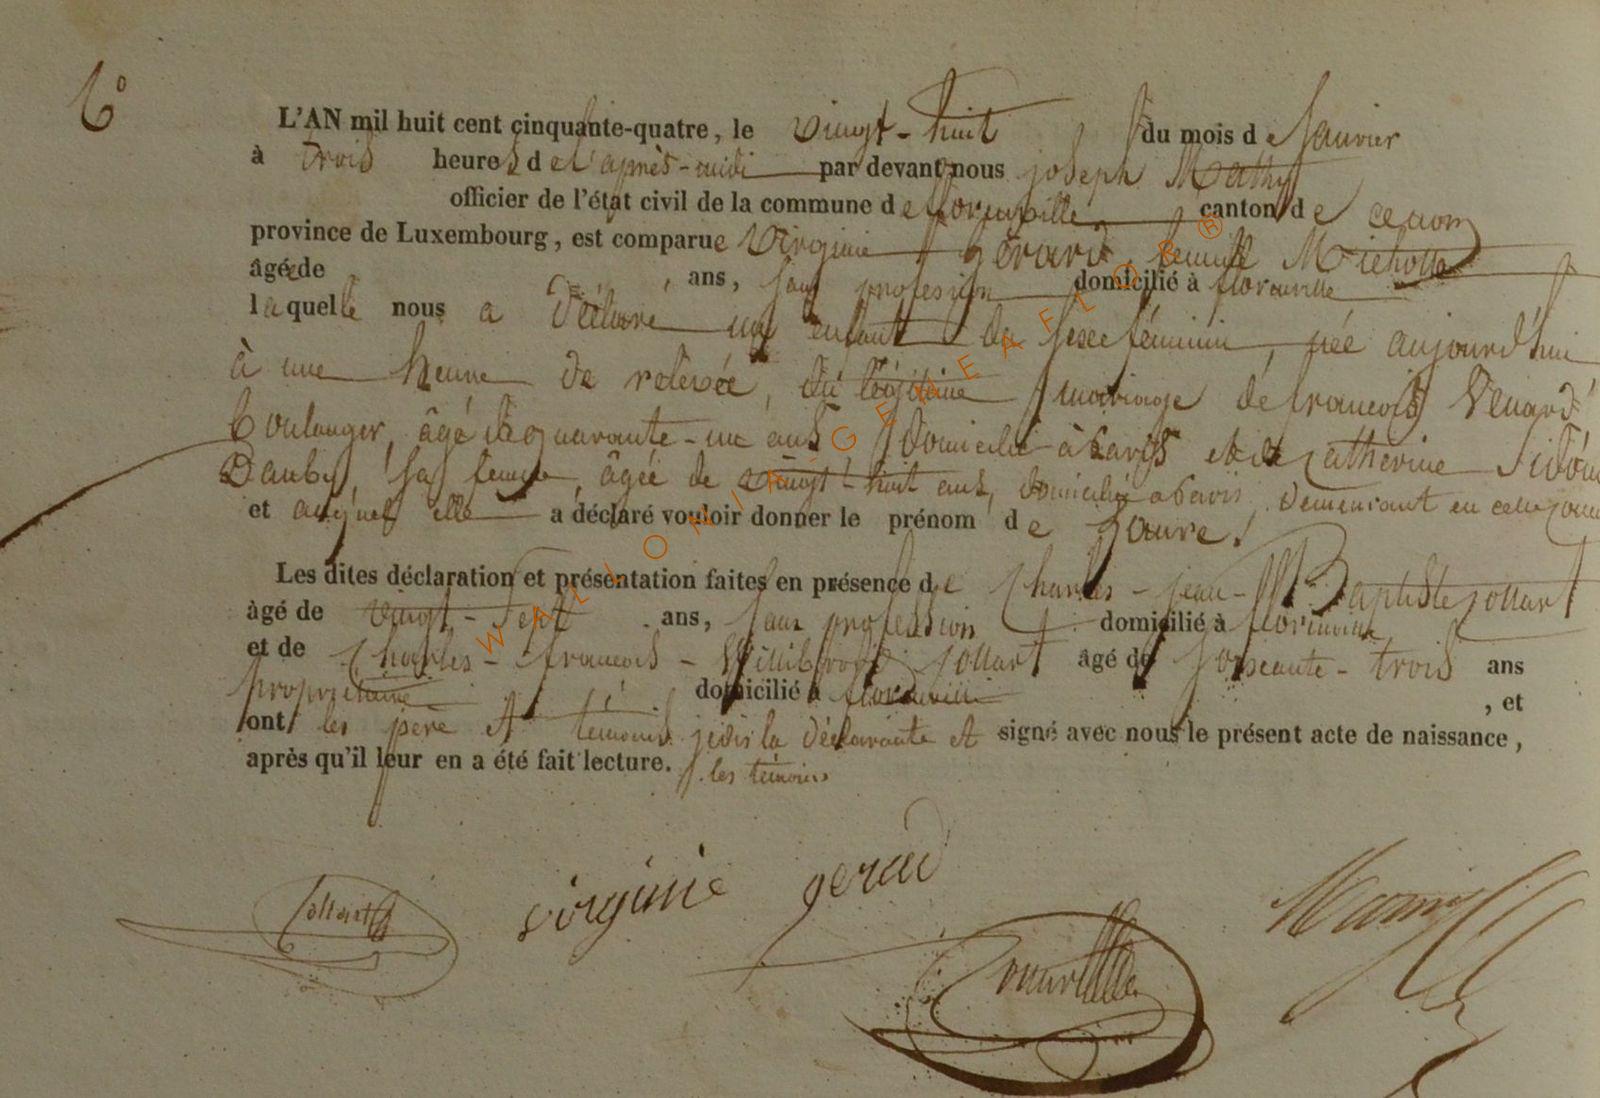 6°
L'AN mil huit cent cinquante-quatre, le vingt-huit du mois de Janvier
à trois heures de l'après-midi par devant nous joseph Mathy
officier de l'état civil de la commune de florenville canton de ce nom
province de Luxembourg, est comparue Virginie gérard, femme Michotte
âgée de ans, sans profession domicilié à florenville
laquelle nous a déclaré un enfant du sexe féminin, née aujourd'hui
à une heure de relevée, du légitime mariage de francois Venard
Boulanger, âgé de quarante-un ans domicilié à Paris et de Catherine Sidon
Dauby, sa femme, âgée de vingt-huit ans, domiciliée à Paris, demeurant en cette
et auquel elle a déclaré vouloir donner le prénom de Laure.
Les dites déclaration et présentation faites en présence de Charles-jean-Baptiste jollart
âgé de vingt-sept ans, sans profession domicilié à florenville
et de Charles-francois-Willibrord jollart âgé de soixante-trois ans
propriétaire domicilié à florenville , et
ont les père et témoins je dis la déclarante et signé avec nous le présent acte de naissance,
après qu'il leur en a été fait lecture. les témoins
virginie gerard
WALLONIA GENEAFLOBR®